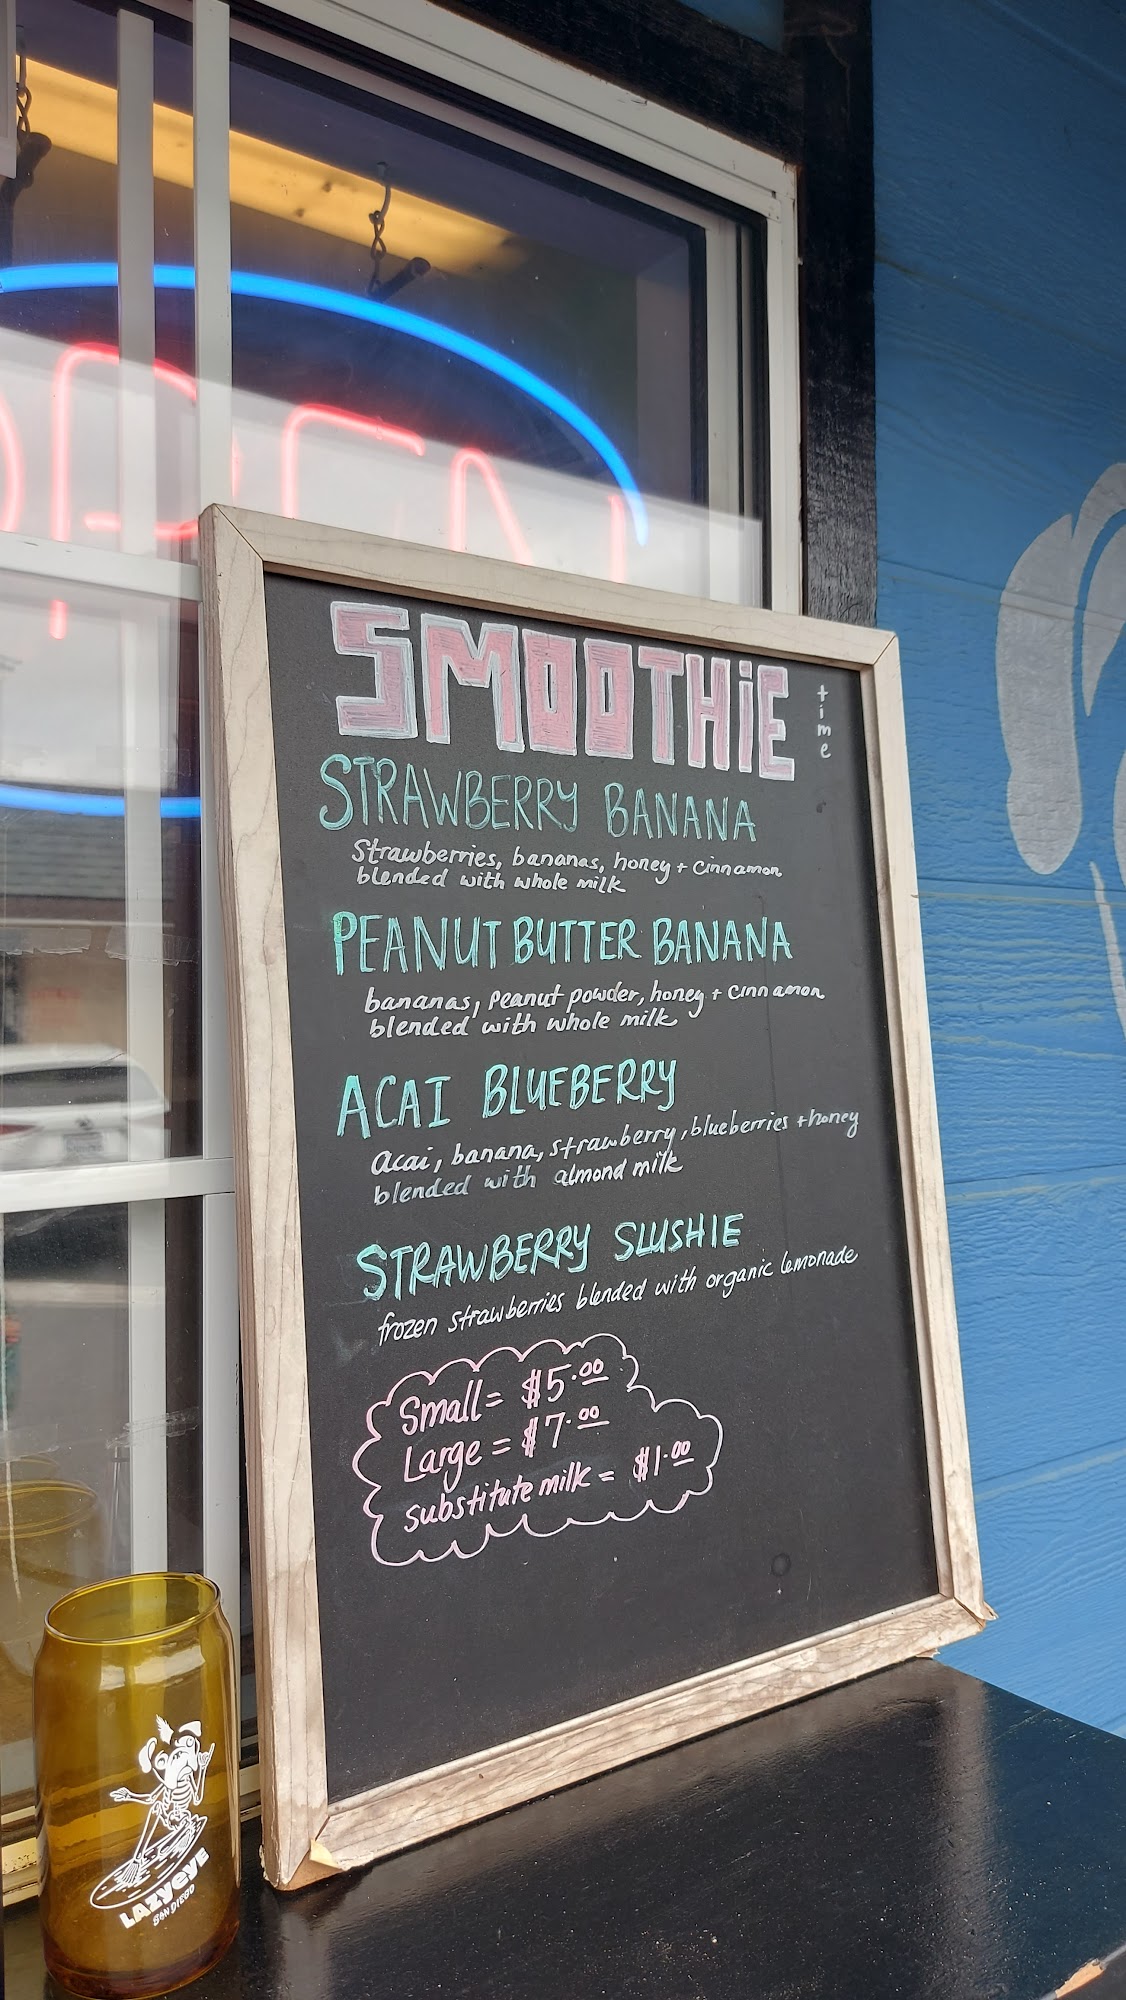 OPEN
SMOOTHiE
time
STRAWBERRY BANANA
Strawberries, bananas, honey + cinnamon
blended with whole milk
PEANUT BUTTER BANANA
bananas, Peanut powder, honey + cinnamon
blended with whole milk
ACAI BLUEBERRY
acai, banana, strawberry, blueberries + honey
blended with almond milk
STRAWBERRY SLUSHIE
frozen strawberries blended with organic lemonade
Small = $5.00
Large = $7.00
substitute milk = $1.00
LAZYEYE
SAN DIEGO